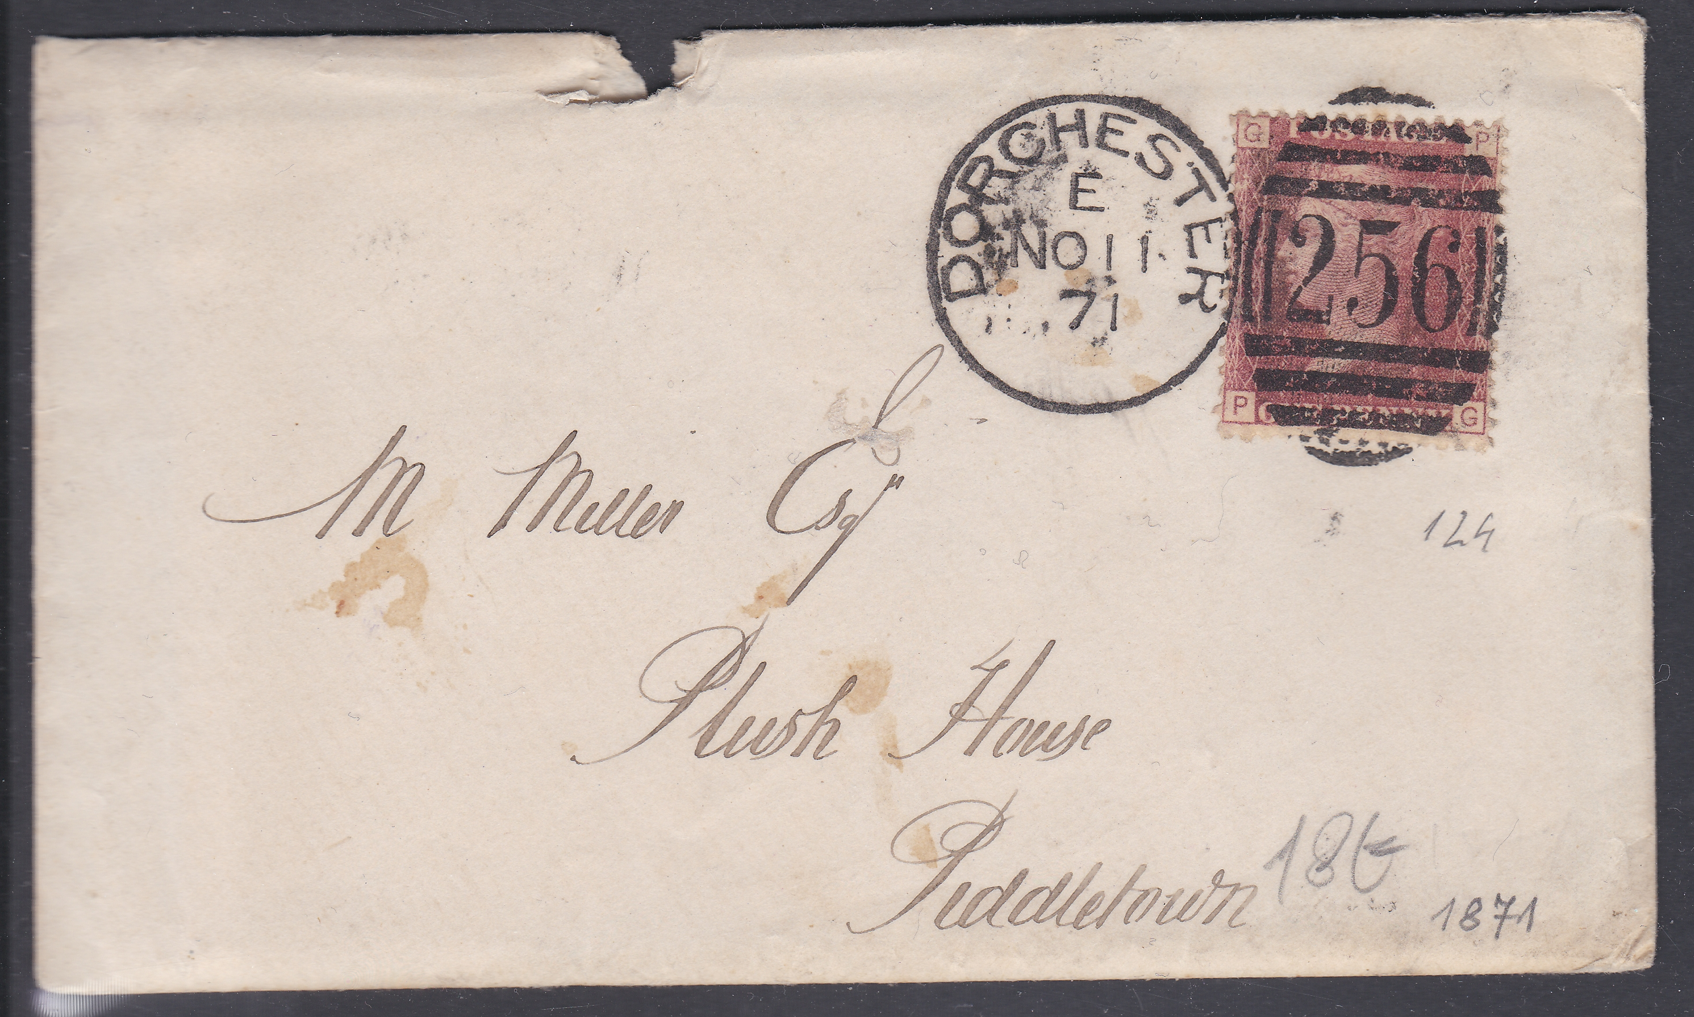 DORCHESTER
E
NO 11
71
256
G P
P G
M Miller Esqr
Plush House
Piddletown
124
18
1871